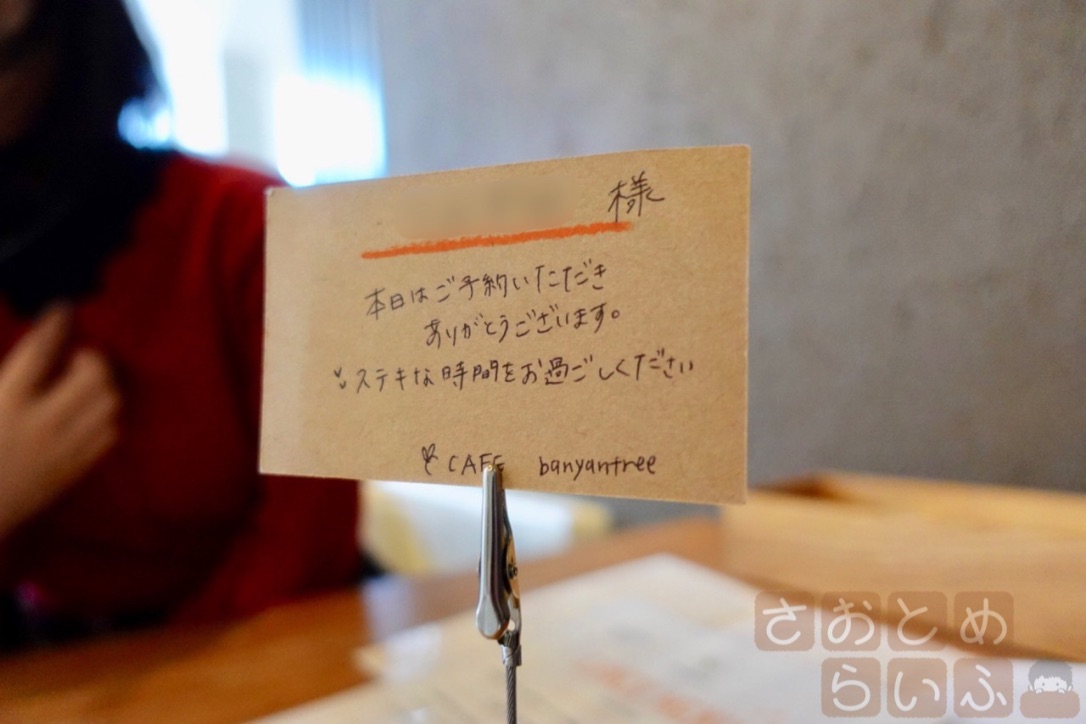 様
本日はご予約いただき
ありがとうございます。
ステキな時間をお過ごしください
CAFE banyantree
さおとめ
らいふ